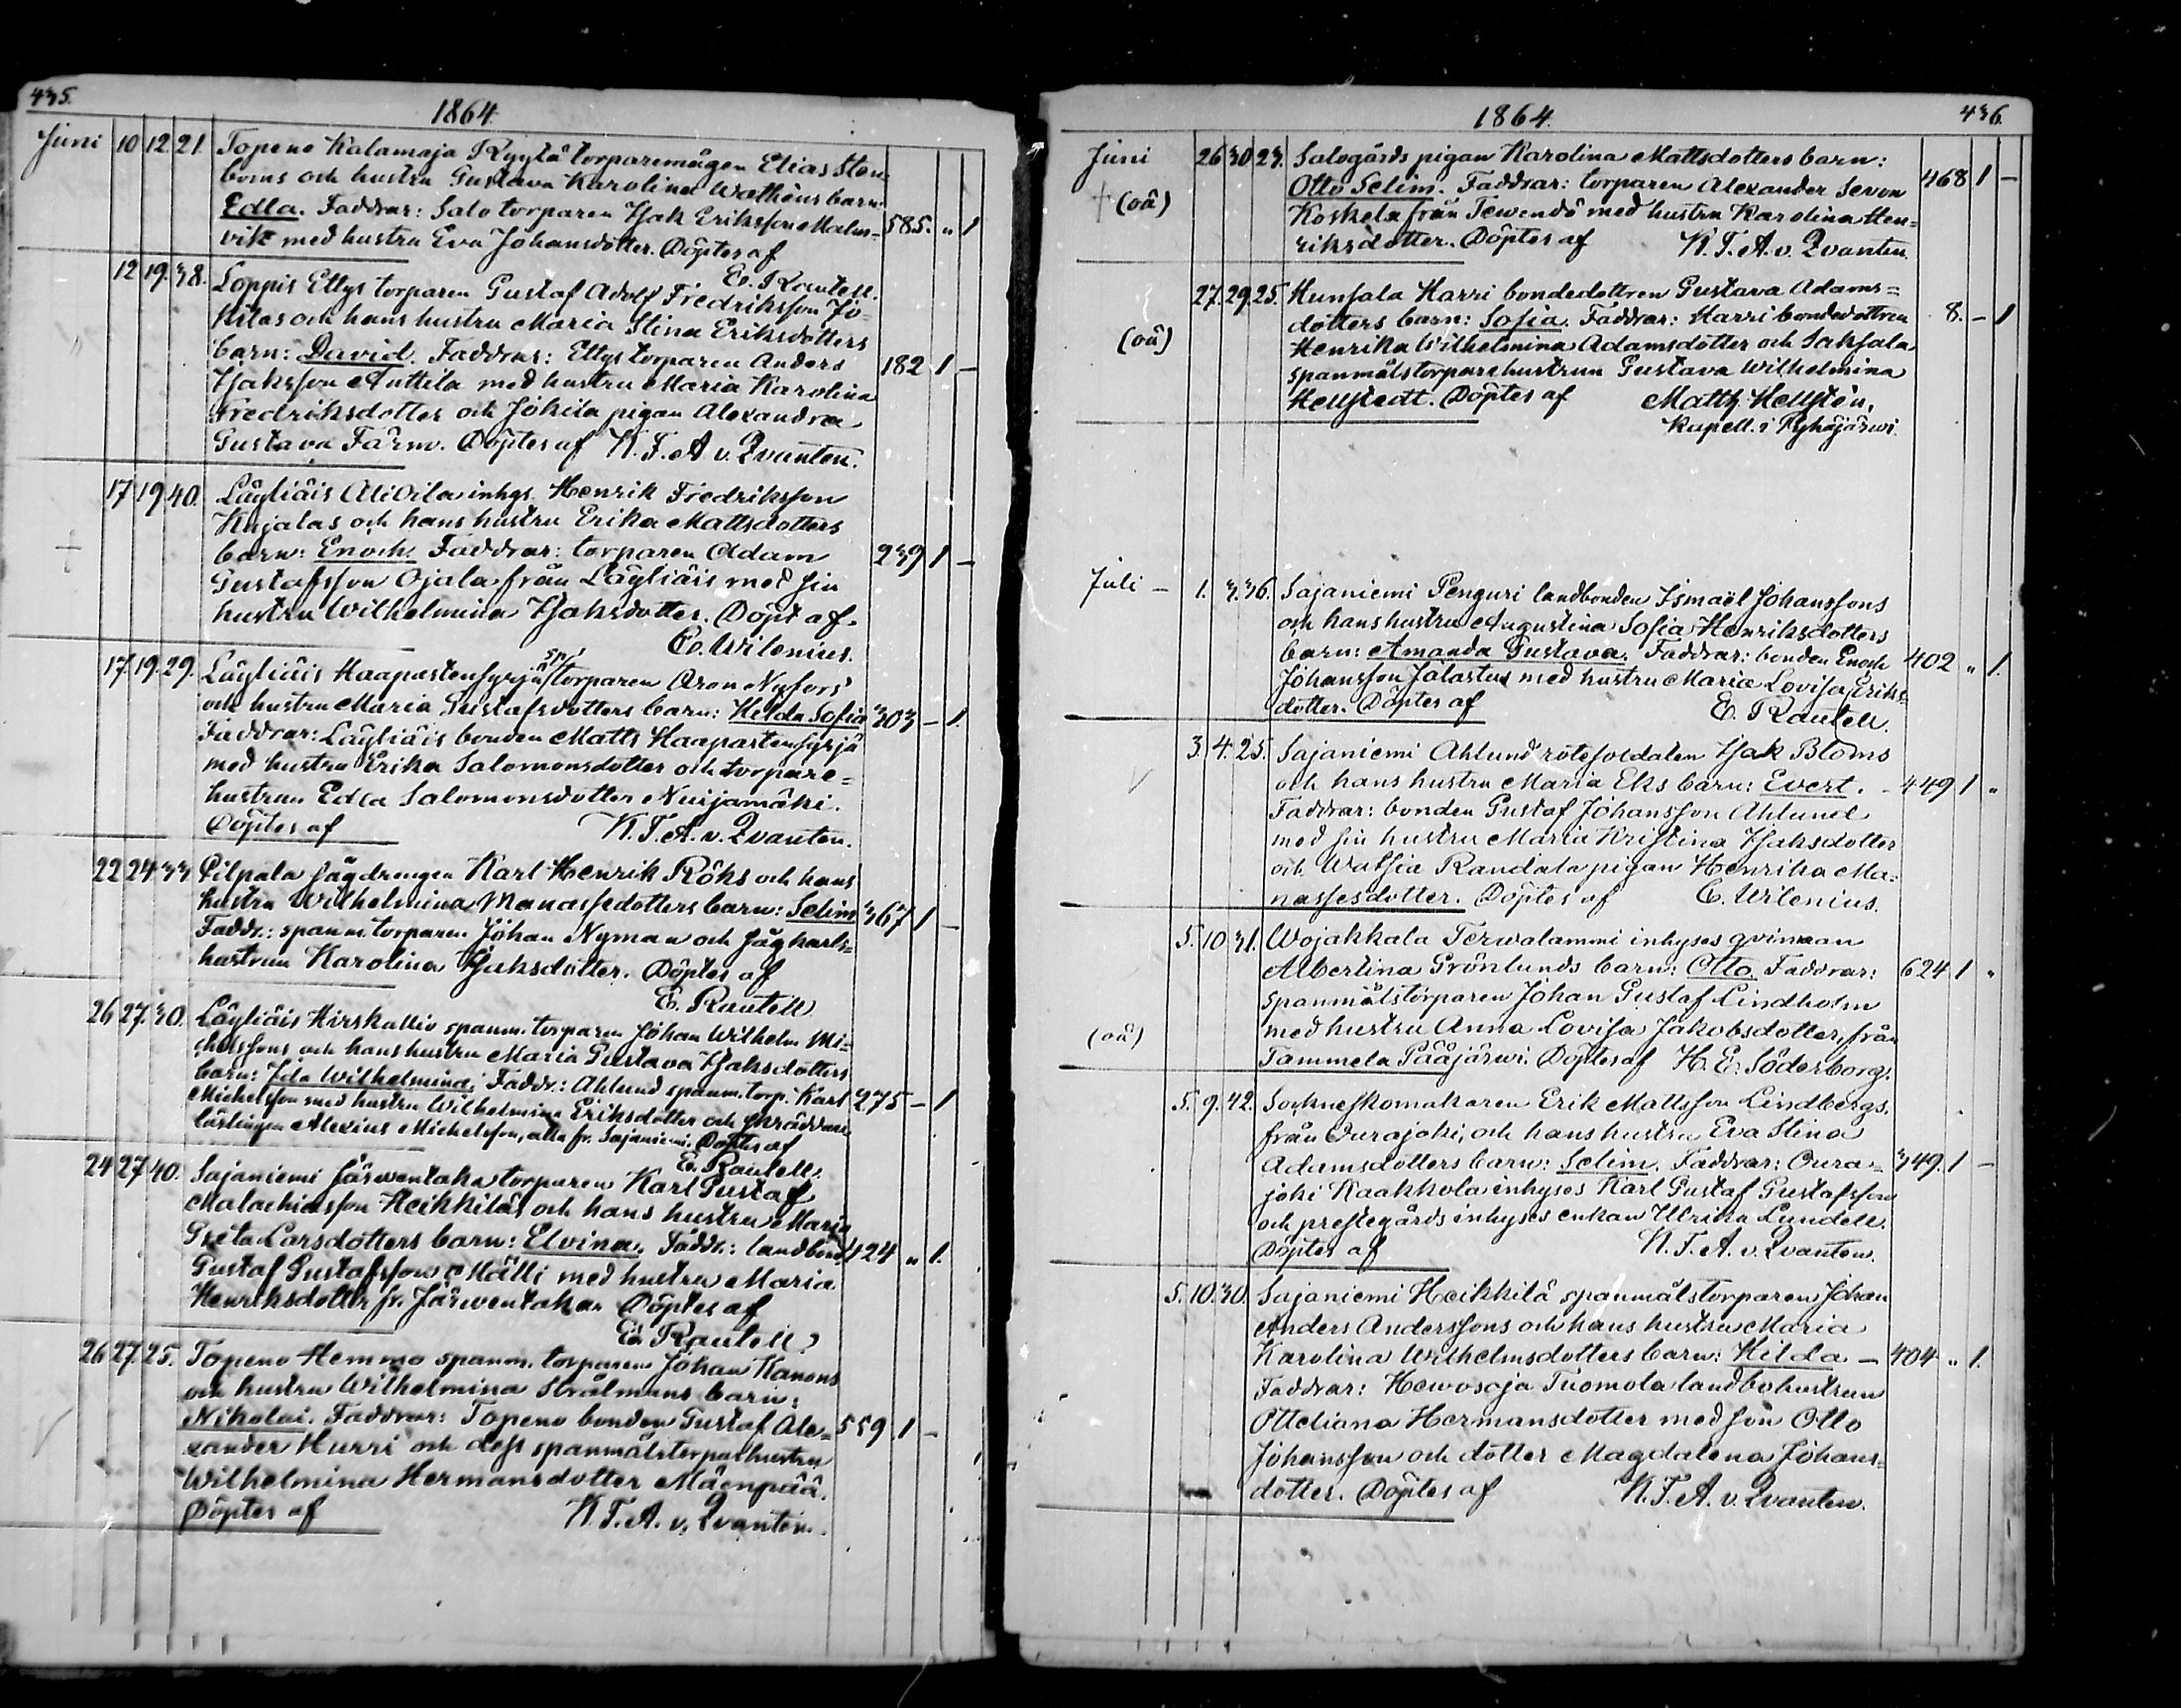 435.
1864.
Juni 10 12 21. Topeno Kalamaja Kyytä torparemågen Elias Sten-
boms och hustru Gustava Karolina Wathéns barn:
Edla. Faddrar: Salo torparen Isak Eriksson Malm- 585. " 1
vik med hustru Eva Johansdotter. Döptes af
E. Rautell.
12 19. 38. Loppis Ettys torparen Gustaf Adolf Fredriksson Jo-
kilas och hans hustru Maria Stina Eriksdotters
barn: David. Faddrar: Ettys torparen Anders 182 1 –
Isaksson Anttila med hustru Maria Karolina
Fredriksdotter och Jokila pigan Alexandra
Gustava Färm. Döptes af N. F. A. v. Qvanten.
17 19 40. Läyliäis Ali Oila inhys. Henrik Fredriksson
Kujalas och hans hustru Erika Mattsdotters
+ barn: Enoch. Faddrar: torparen Adam 239 1 –
Gustafsson Ojala från Läyliäis med sin
hustru Wilhelmina Isaksdotter. Döpt af
E. Wilenius.
17. 19. 29. Läyliäis Haapastensyrjä sp. torparen Aron Nyfors
och hustru Maria Gustafsdotters barn: Hilda Sofia 303 – 1.
Faddrar: Läyliäis bonden Matts Haapastensyrjä
med hustru Erika Salomonsdotter och torpare-
hustrun Edla Salomonsdotter Nuijamäki.
Döptes af N. F. A. v. Qvanten.
22 24 33 Pilpala sågdrengen Karl Henrik Röks och hans
hustru Wilhelmina Manassedotters barn: Selim 367 1 –
Faddr.: spanm. torparen Johan Nyman och sågkarls-
hustrun Karolina Isaksdotter. Döptes af
E. Rautell
26 27. 30. Läyliäis Hirskallio spanm. torparen Johan Wilhelm Mi-
chelssons och hans hustru Maria Gustava Isaksdotters
barn: Ida Wilhelmina. Faddr.: Ahlund spanm. torp. Karl 275 – 1
Michelsson med hustru Wilhelmina Eriksdotter och skräddare
lärlingen Alexius Michelsson, alla fr. Sajaniemi. Döptes af
E. Rautell.
24 27 40. Sajaniemi Järventaka torparen Karl Gustaf
Malachiasson Heikkiläs och hans hustru Maria
Greta Larsdotters barn: Elvina. Faddr.: landbond. 424 " 1.
Gustaf Gustafsson Mälli med hustru Maria
Henriksdotter fr. Järventaka. Döptes af
E. Rautell.
26 27. 25. Topeno Hemmo spanm. torparen Johan Kanons
och hustru Wilhelmina Strålmans barn:
Nikolai. Faddrar: Topeno bonden Gustaf Ale- 559 1 –
xander Hurri och dess spanmålstorparhustru
Wilhelmina Hermansdotter Mäenpää.
Döptes af N. F. A. v. Qvanten.
1864.
436.
Juni 26 30 23. Salogårds pigan Karolina Mattsdotters barn:
+ (oä) Otto Selim. Faddrar: torparen Alexander Servon 468 1 –
Koskela från Tewendö med hustru Karolina Hen-
riksdotter. Döptes af N. F. A. v. Qvanten.
27. 29. 25. Hunsala Harri bondedottren Gustava Adams-
(oä) dotters barn: Sofia. Faddrar: Harri bondedottren 8. – 1
Henrika Wilhelmina Adamsdotter och Saksala
spanmålstorparehustrun Gustava Wilhelmina
Hellstedt. Döptes af Matth. Hellstén,
Kapell. i Pyhäjärwi.
Juli – 1. 3. 36. Sajaniemi Penguri landbonden Ismaël Johanssons
och hans hustru Augustina Sofia Henriksdotters
barn: Amanda Gustava. Faddrar: bonden Enoch 402 " 1.
Johansson Jalastus med hustru Maria Lovisa Eriks-
dotter. Döptes af E. Rautell.
3. 4. 25. Sajaniemi Ahlund rotesoldaten Isak Bloms
och hans hustru Maria Eks barn: Evert. – 449 1 "
Faddrar: bonden Gustaf Johansson Ahlund
med sin hustru Maria Kristina Isaksdotter
och Watsia Randala pigan Henrika Ma-
nassesdotter. Döptes af E. Wilenius.
5. 10 31. Wojakkala Terwalammi inhyses qvinnan
Albertina Grönlunds barn: Otto. Faddrar: 624 1 "
spanmålstorparen Johan Gustaf Lindholm
(oä) med hustru Anna Lovisa Jakobsdotter, från
Tammela Pääjärwi. Döptes af H. E. Söderborg.
5. 9. 42. Sockneskomakaren Erik Mattsson Lindbergs,
från Ourajoki, och hans hustru Eva Stina
Adamsdotters barn: Selim. Faddrar: Oura- 349. 1 –
joki Kaakkola inhyses Karl Gustaf Gustafsson
och prestegårds inhyses enkan Ulrika Lundell.
Döptes af N. F. A. v. Qvanten.
5. 10. 30. Sajaniemi Heikkilä spanmålstorparen Johan
Anders Anderssons och hans hustru Maria
Karolina Wilhelmsdotters barn: Hilda – 404 " 1.
Faddrar: Hewosoja Tuomola landbohustrun
Otteliana Hermansdotter med son Otto
Johansson och dotter Magdalena Johans-
dotter. Döptes af N. F. A. v. Qvanten.